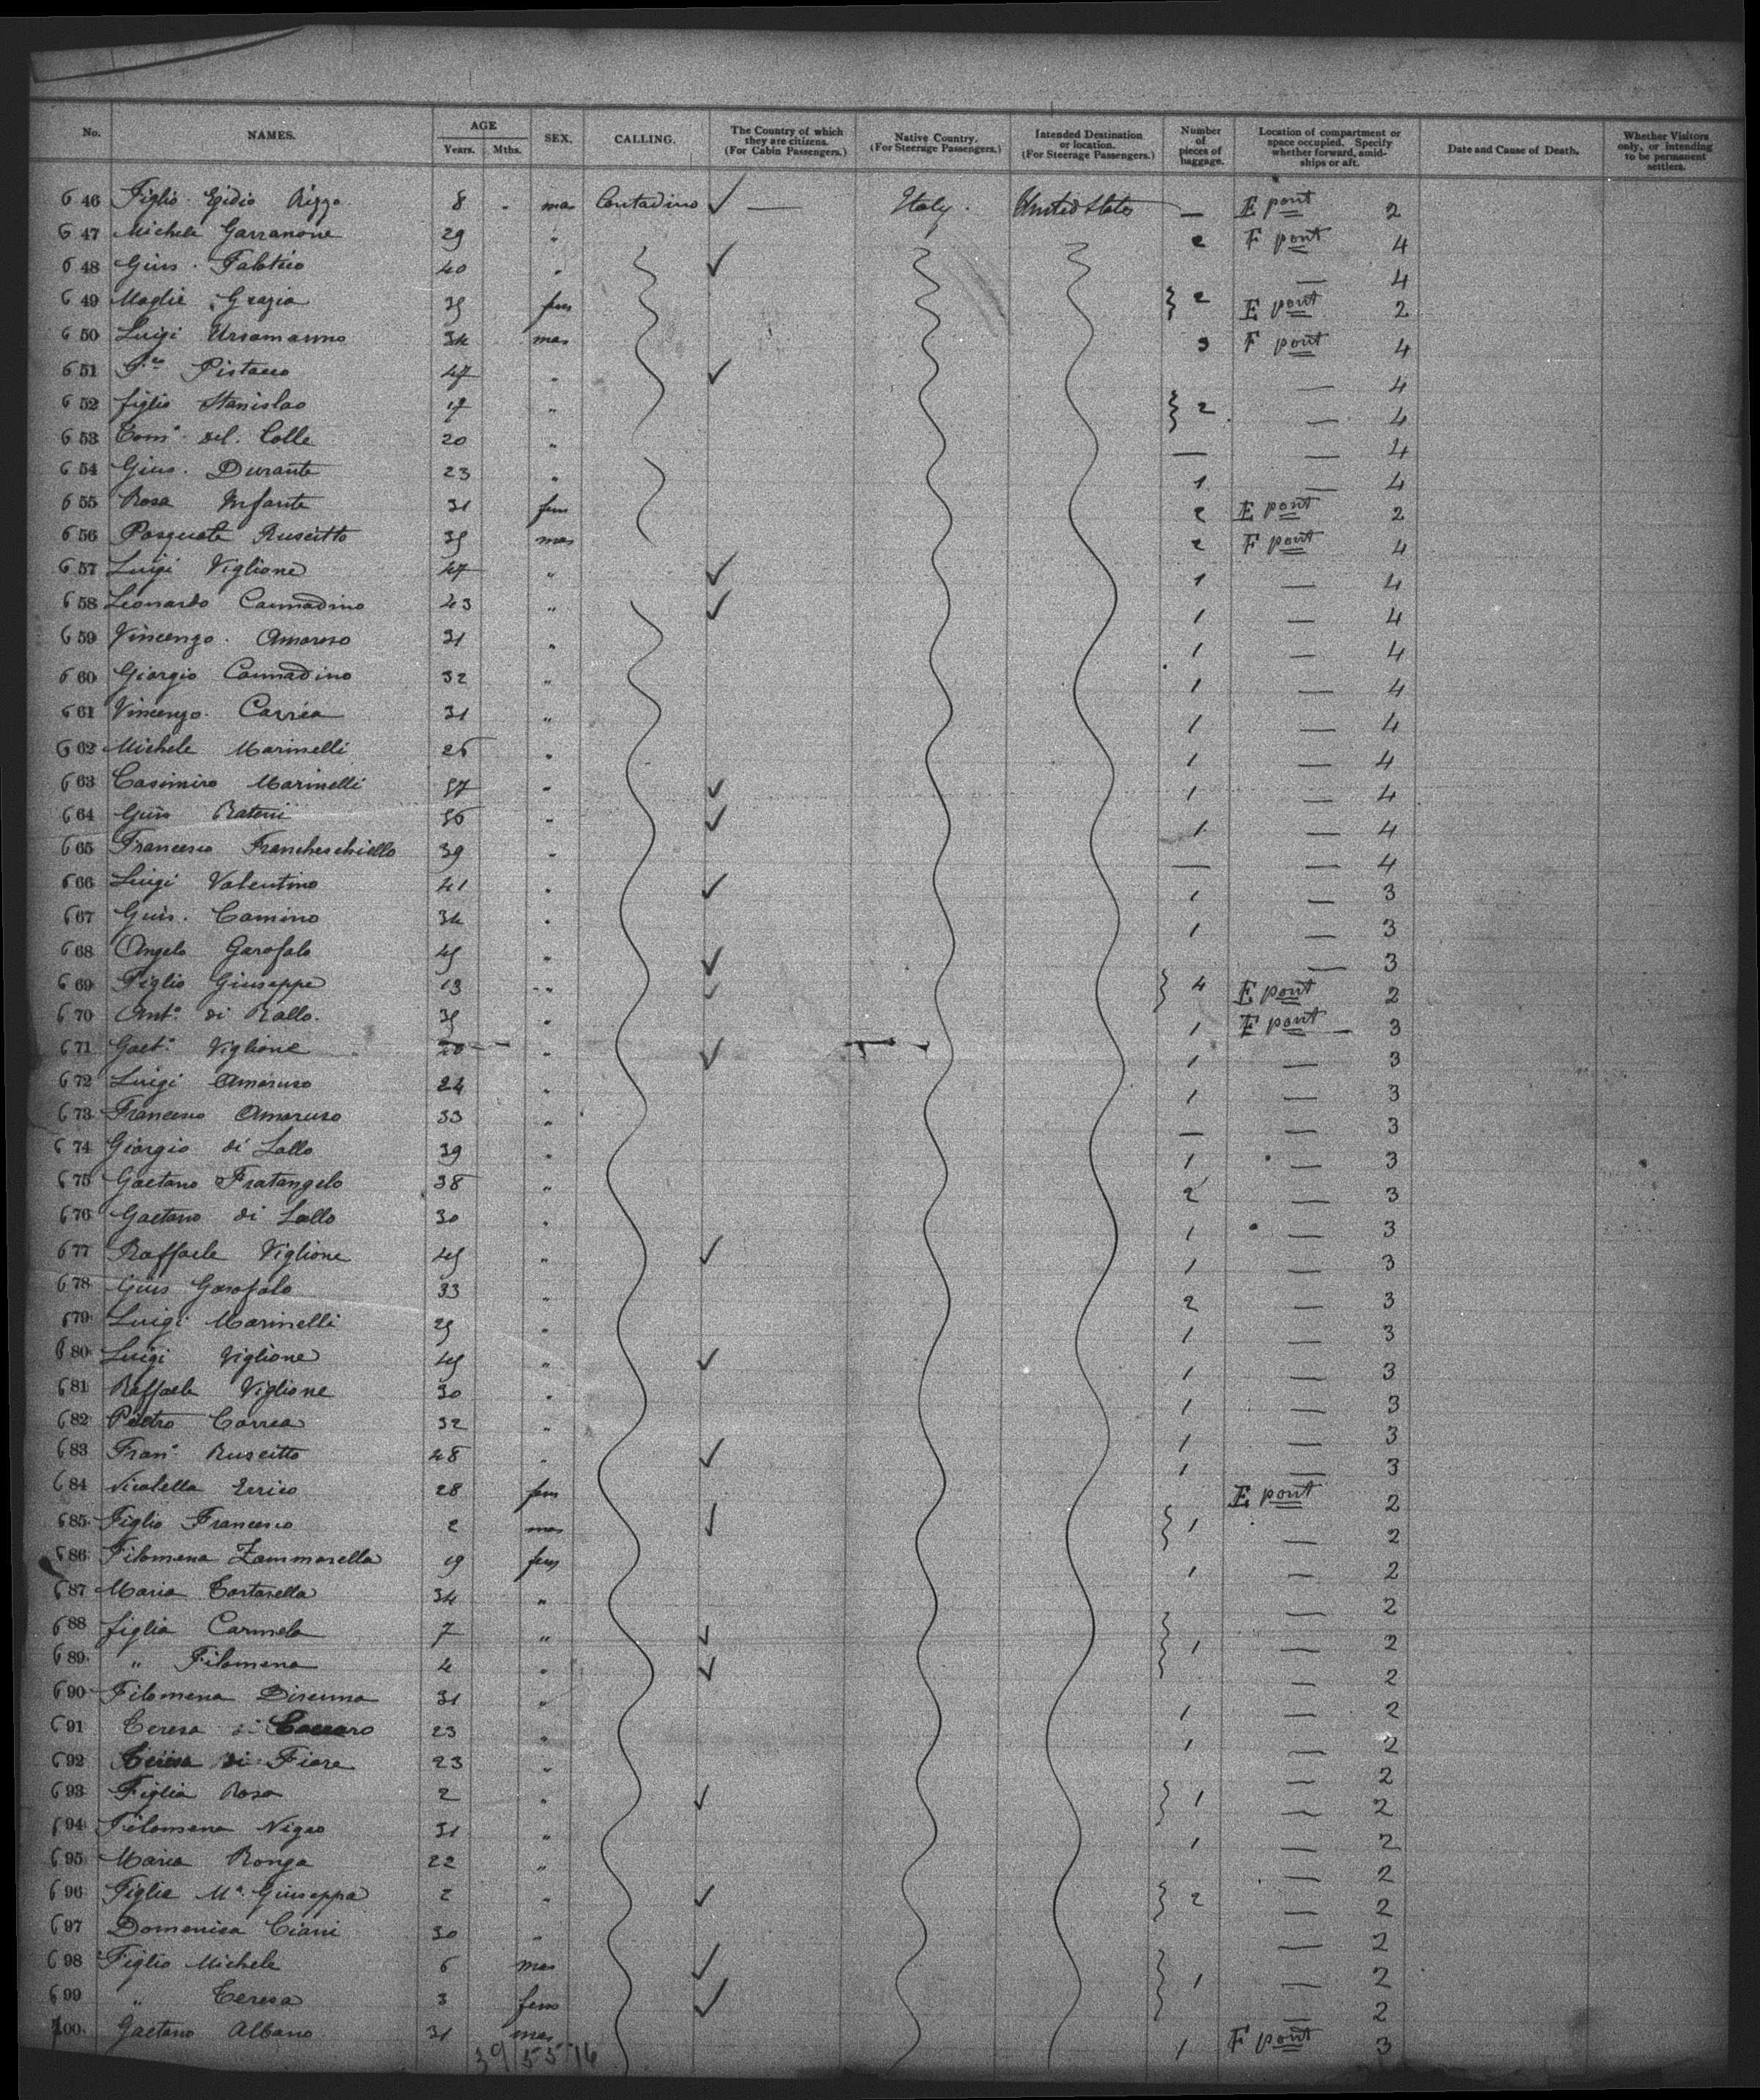 No. NAMES. AGE Years. Mths. SEX. CALLING. The Country of which they are citizens. (For Cabin Passengers.) Native Country. (For Steerage Passengers.) Intended Destination or location. (For Steerage Passengers.) Number of pieces of baggage. Location of compartment or space occupied. Specify whether forward, amidships or aft. Date and Cause of Death. Whether Visitors only, or intending to be permanent settlers.
646 Figlio Egidio Rizzo 8 mas Contadino ✓ — Italy. United States — E pont 2
647 Michele Garranone 29 " 2 F pont 4
648 Gius. Fabtrio 40 " ✓ — 4
649 Moglie Grazia 35 fem } 2 E pont 2
650 Luigi 34 mas 3 F pont 4
651 Pistacco 47 " ✓ — 4
652 figlio Stanislao 17 " } 2 — 4
653 Tomº del Colle 20 " — — 4
654 Gius. Durante 23 " 1 — 4
655 Rosa Infante 31 fem 2 E pont 2
656 Pasquale Ruscitto 35 mas 2 F pont 4
657 Luigi Viglione 47 " ✓ 1 — 4
658 Leonardo Cannadino 43 " ✓ 1 — 4
659 Vincenzo. Amoroso 31 " 1 — 4
660 Giorgio Cannadino 32 " 1 — 4
661 Vincenzo. Carrea 31 " 1 — 4
662 Michele Marinelli 25 " 1 — 4
663 Casimiro Marinelli 57 " ✓ 1 — 4
664 Gius 56 " ✓ 1 — 4
665 Francesco Francheschiello 39 " — — 4
666 Luigi Valentino 41 " ✓ 1 — 3
667 Guis. Camino 34 " 1 — 3
668 Angelo Garofalo 45 " ✓ — 3
669 Figlio Giuseppe 13 " ✓ } 4 E pont 2
670 Antº di Rallo. 35 " 1 F pont — 3
671 Gaetº Viglione " ✓ 1 — 3
672 Luigi Amoruso 24 " 1 — 3
673 Francesco Amoruso 33 " — — 3
674 Giorgio di Lallo 39 " 1 — 3
675 Gaetano Fratangelo 38 " 2 — 3
676 Gaetano di Lallo 30 " 1 — 3
677 Raffaele Viglione 45 " ✓ 1 — 3
678 Guis Garofalo 33 " 2 — 3
679 Luigi Marinelli 25 " 1 — 3
680 Luigi Viglione 45 " ✓ 1 — 3
681 Raffaele Viglione 30 " 1 — 3
682 Pietro Carrea 32 " 1 — 3
683 Franº Ruscitto 48 " ✓ 1 — 3
684 Nicolella Errico 28 fem E pont 2
685 Figlio Francesco 2 mas ✓ } 1 — 2
686 Filomena Zammarella 19 fem 1 — 2
687 Maria Tartarella 34 " — 2
688 figlia Carmela 7 " ✓ } 1 — 2
689 " Filomena 4 " ✓ — 2
690 Filomena 31 " 1 — 2
691 Teresa di 23 " 1 — 2
692 Teresa di Fiore 23 " — 2
693 Figlia Rosa 2 " ✓ } 1 — 2
694 Filomena Nigro 31 " 1 — 2
695 Maria Ronga 22 " — 2
696 Figlia Mª Giuseppa 2 " ✓ } 2 — 2
697 Domenica Ciani 30 " — 2
698 Figlio Michele 6 mas ✓ } 1 — 2
699 " Teresa 3 fem ✓ — 2
700 Gaetano Albano 31 mas 1 F pont 3
39 55 16